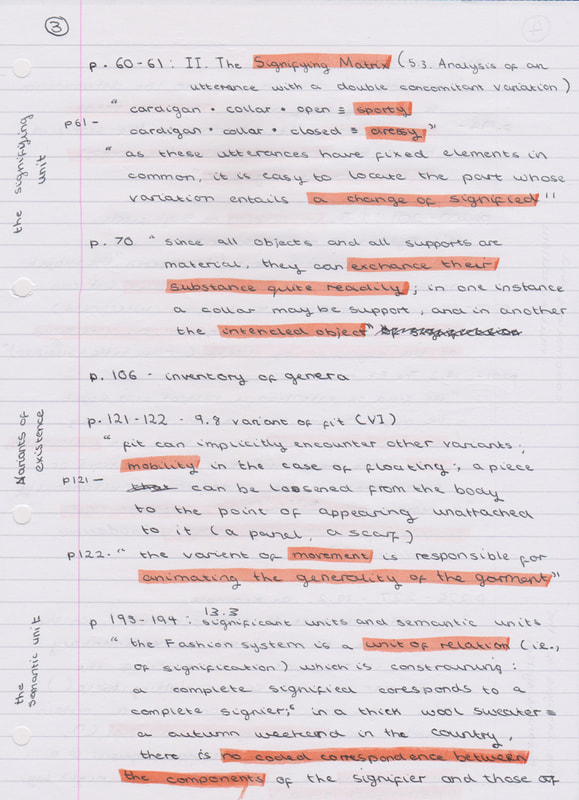 3
p. 60-61: II. The Signifying Matrix (5.3. Analysis of an
utterance with a double concomitant variation)
the signifying unit
p61 -
" cardigan • collar • open ≡ sporty
cardigan • collar • closed ≡ dressy "
" as these utterances have fixed elements in
common, it is easy to locate the part whose
variation entails a change of signified "
p. 70 " since all objects and all supports are
material, they can exchance their
substance quite readily ; in one instance
a collar may be support, and in another
the intended object"
p. 106 - inventory of genera
Variants of existence
p. 121-122 - 9.8 variant of fit (VI)
" fit can implicitly encounter other variants ;
mobility in the case of floating ; a piece
p121 -
that can be loosened from the body
to the point of appearing unattached
to it (a panel, a scarf)
p122. " the varient of movement is responsible for
animating the generality of the garment"
the semantic unit
p 193-194 : 13.3 significant units and semantic units
" the Fashion system is a unit of relation (i.e.,
of signification) which is constraining :
a complete signified coresponds to a
complete signier;6 in a thick wool sweater =
a autumn weekend in the country,
there is no coded correspondence between
the components of the signifier and those of